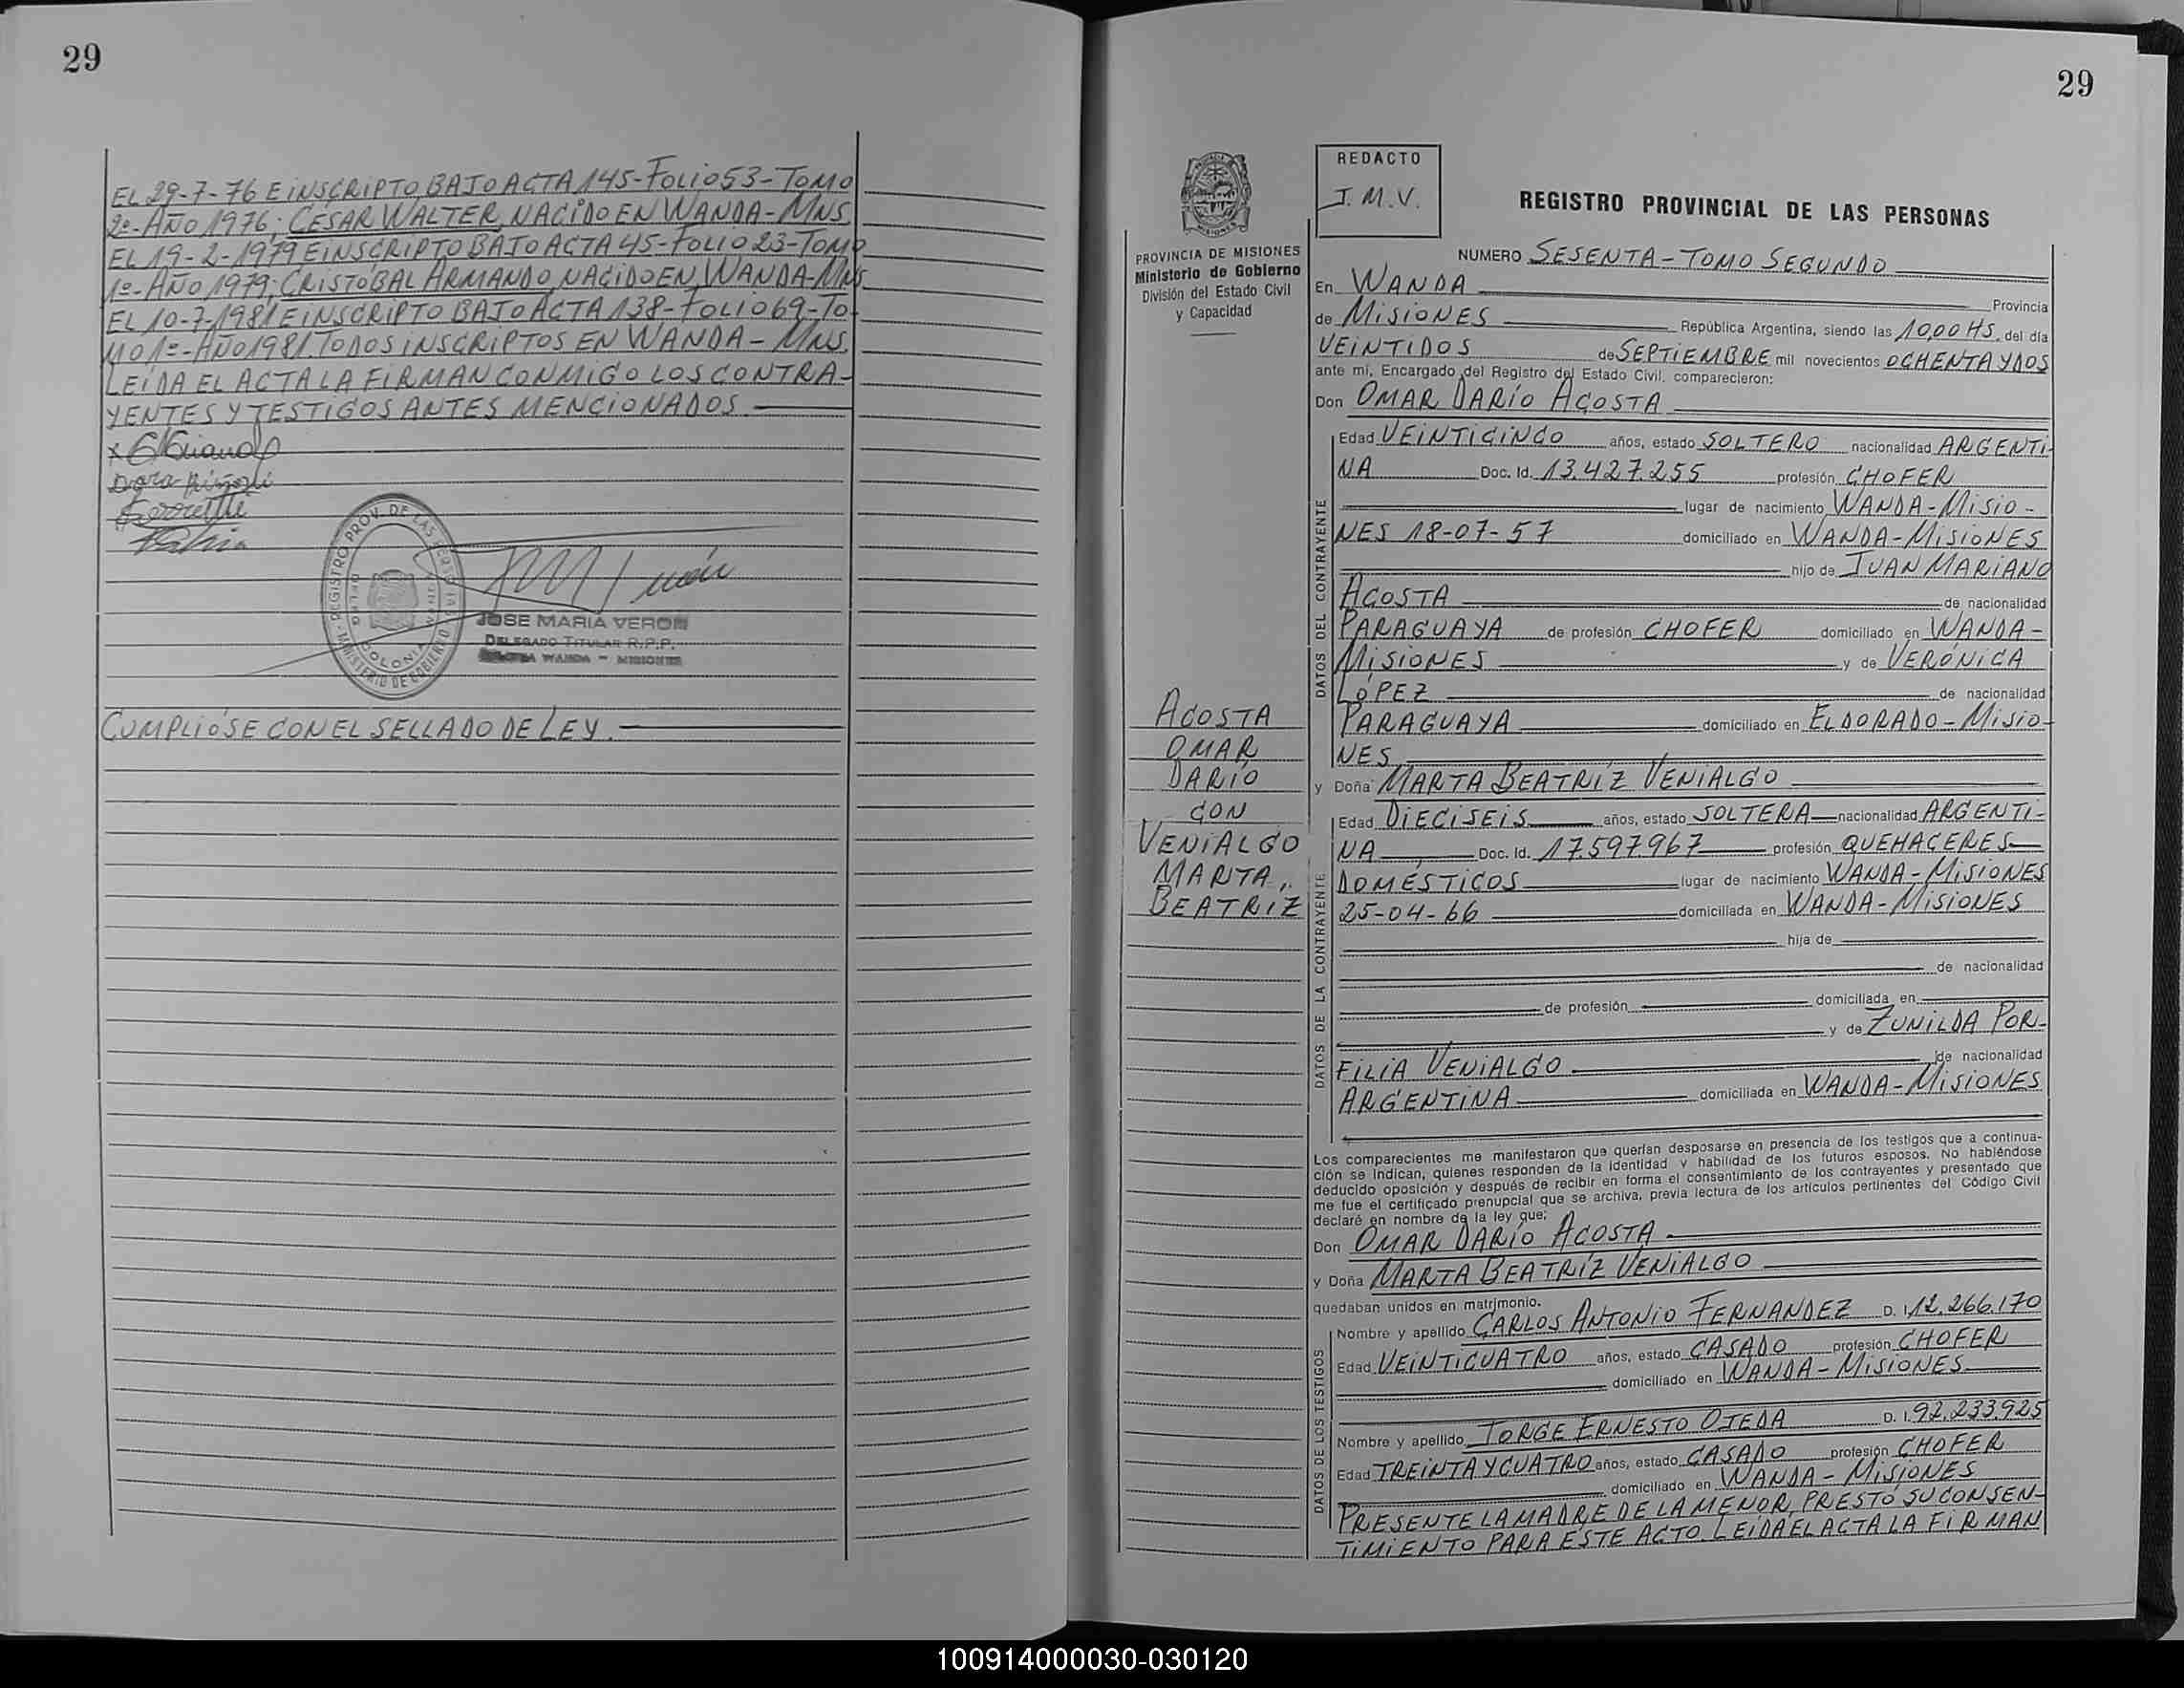 29
EL 29-7-76 E INSCRIPTO BAJO ACTA 145-FOLIO 53-TOMO
2º-AÑO 1976; CESAR WALTER, NACIDO EN WANDA-MNS
EL 19-2-1979 E INSCRIPTO BAJO ACTA 45-FOLIO 23-TOMO
1º-AÑO 1979; CRISTÓBAL ARMANDO, NACIDO EN WANDA-MNS
EL 10-7-1981 E INSCRIPTO BAJO ACTA 138-FOLIO 69-TO
MO 1º-AÑO 1981. TODOS INSCRIPTOS EN WANDA-MNS.
LEÍDA EL ACTA LA FIRMAN CONMIGO LOS CONTRA-
YENTES Y TESTIGOS ANTES MENCIONADOS
REGISTRO PROV. DE LAS PERSONAS
MINISTERIO DE GOBIERNO
COLONIA
JOSE MARIA VERON
DELEGADO TITULAR R.P.P.
WANDA - MISIONES
CUMPLIÓSE CON EL SELLADO DE LEY.
29
PROVINCIA DE MISIONES
Ministerio de Gobierno
División del Estado Civil
y Capacidad
REDACTO
J.M.V.
REGISTRO PROVINCIAL DE LAS PERSONAS
NUMERO SESENTA-TOMO SEGUNDO
En WANDA Provincia
de MISIONES República Argentina, siendo las 10,00 HS. del día
VEINTIDOS de SEPTIEMBRE mil novecientos OCHENTA Y DOS
ante mí, Encargado del Registro del Estado Civil, comparecieron:
Don OMAR DARÍO ACOSTA
DATOS DEL CONTRAYENTE
Edad VEINTICINCO años, estado SOLTERO nacionalidad ARGENTI-
NA Doc. Id. 13.427.255 profesión CHOFER
lugar de nacimiento WANDA-MISIO-
NES 18-07-57 domiciliado en WANDA-MISIONES
hijo de JUAN MARIANO
ACOSTA de nacionalidad
PARAGUAYA de profesión CHOFER domiciliado en WANDA-
MISIONES y de VERÓNICA
LÓPEZ de nacionalidad
PARAGUAYA domiciliado en ELDORADO-MISIO-
NES
ACOSTA
OMAR
DARÍO
CON
VENIALGO
MARTA
BEATRIZ
y Doña MARTA BEATRÍZ VENIALGO
DATOS DE LA CONTRAYENTE
Edad DIECISEIS años, estado SOLTERA nacionalidad ARGENTI-
NA Doc. Id. 17.597.967 profesión QUEHACERES
DOMÉSTICOS lugar de nacimiento WANDA-MISIONES
25-04-66 domiciliada en WANDA-MISIONES
hija de
de nacionalidad
de profesión domiciliada en
y de ZUNILDA POR-
FILIA VENIALGO de nacionalidad
ARGENTINA domiciliada en WANDA-MISIONES
Los comparecientes me manifestaron que querían desposarse en presencia de los testigos que a continua-
ción se indican, quienes responden de la identidad y habilidad de los futuros esposos. No habiéndose
deducido oposición y después de recibir en forma el consentimiento de los contrayentes y presentado que
me fue el certificado prenupcial que se archiva, previa lectura de los artículos pertinentes del Código Civil
declaré en nombre de la ley que:
Don OMAR DARÍO ACOSTA
y Doña MARTA BEATRÍZ VENIALGO
quedaban unidos en matrimonio.
DATOS DE LOS TESTIGOS
Nombre y apellido CARLOS ANTONIO FERNANDEZ D. I. 12.266.170
Edad VEINTICUATRO años, estado CASADO profesión CHOFER
domiciliado en WANDA-MISIONES
Nombre y apellido JORGE ERNESTO OJEDA D. I. 92.233.925
Edad TREINTA Y CUATRO años, estado CASADO profesión CHOFER
domiciliado en WANDA-MISIONES
PRESENTE LA MADRE DE LA MENOR, PRESTÓ SU CONSEN-
TIMIENTO PARA ESTE ACTO. LEÍDA EL ACTA LA FIRMAN
100914000030-030120